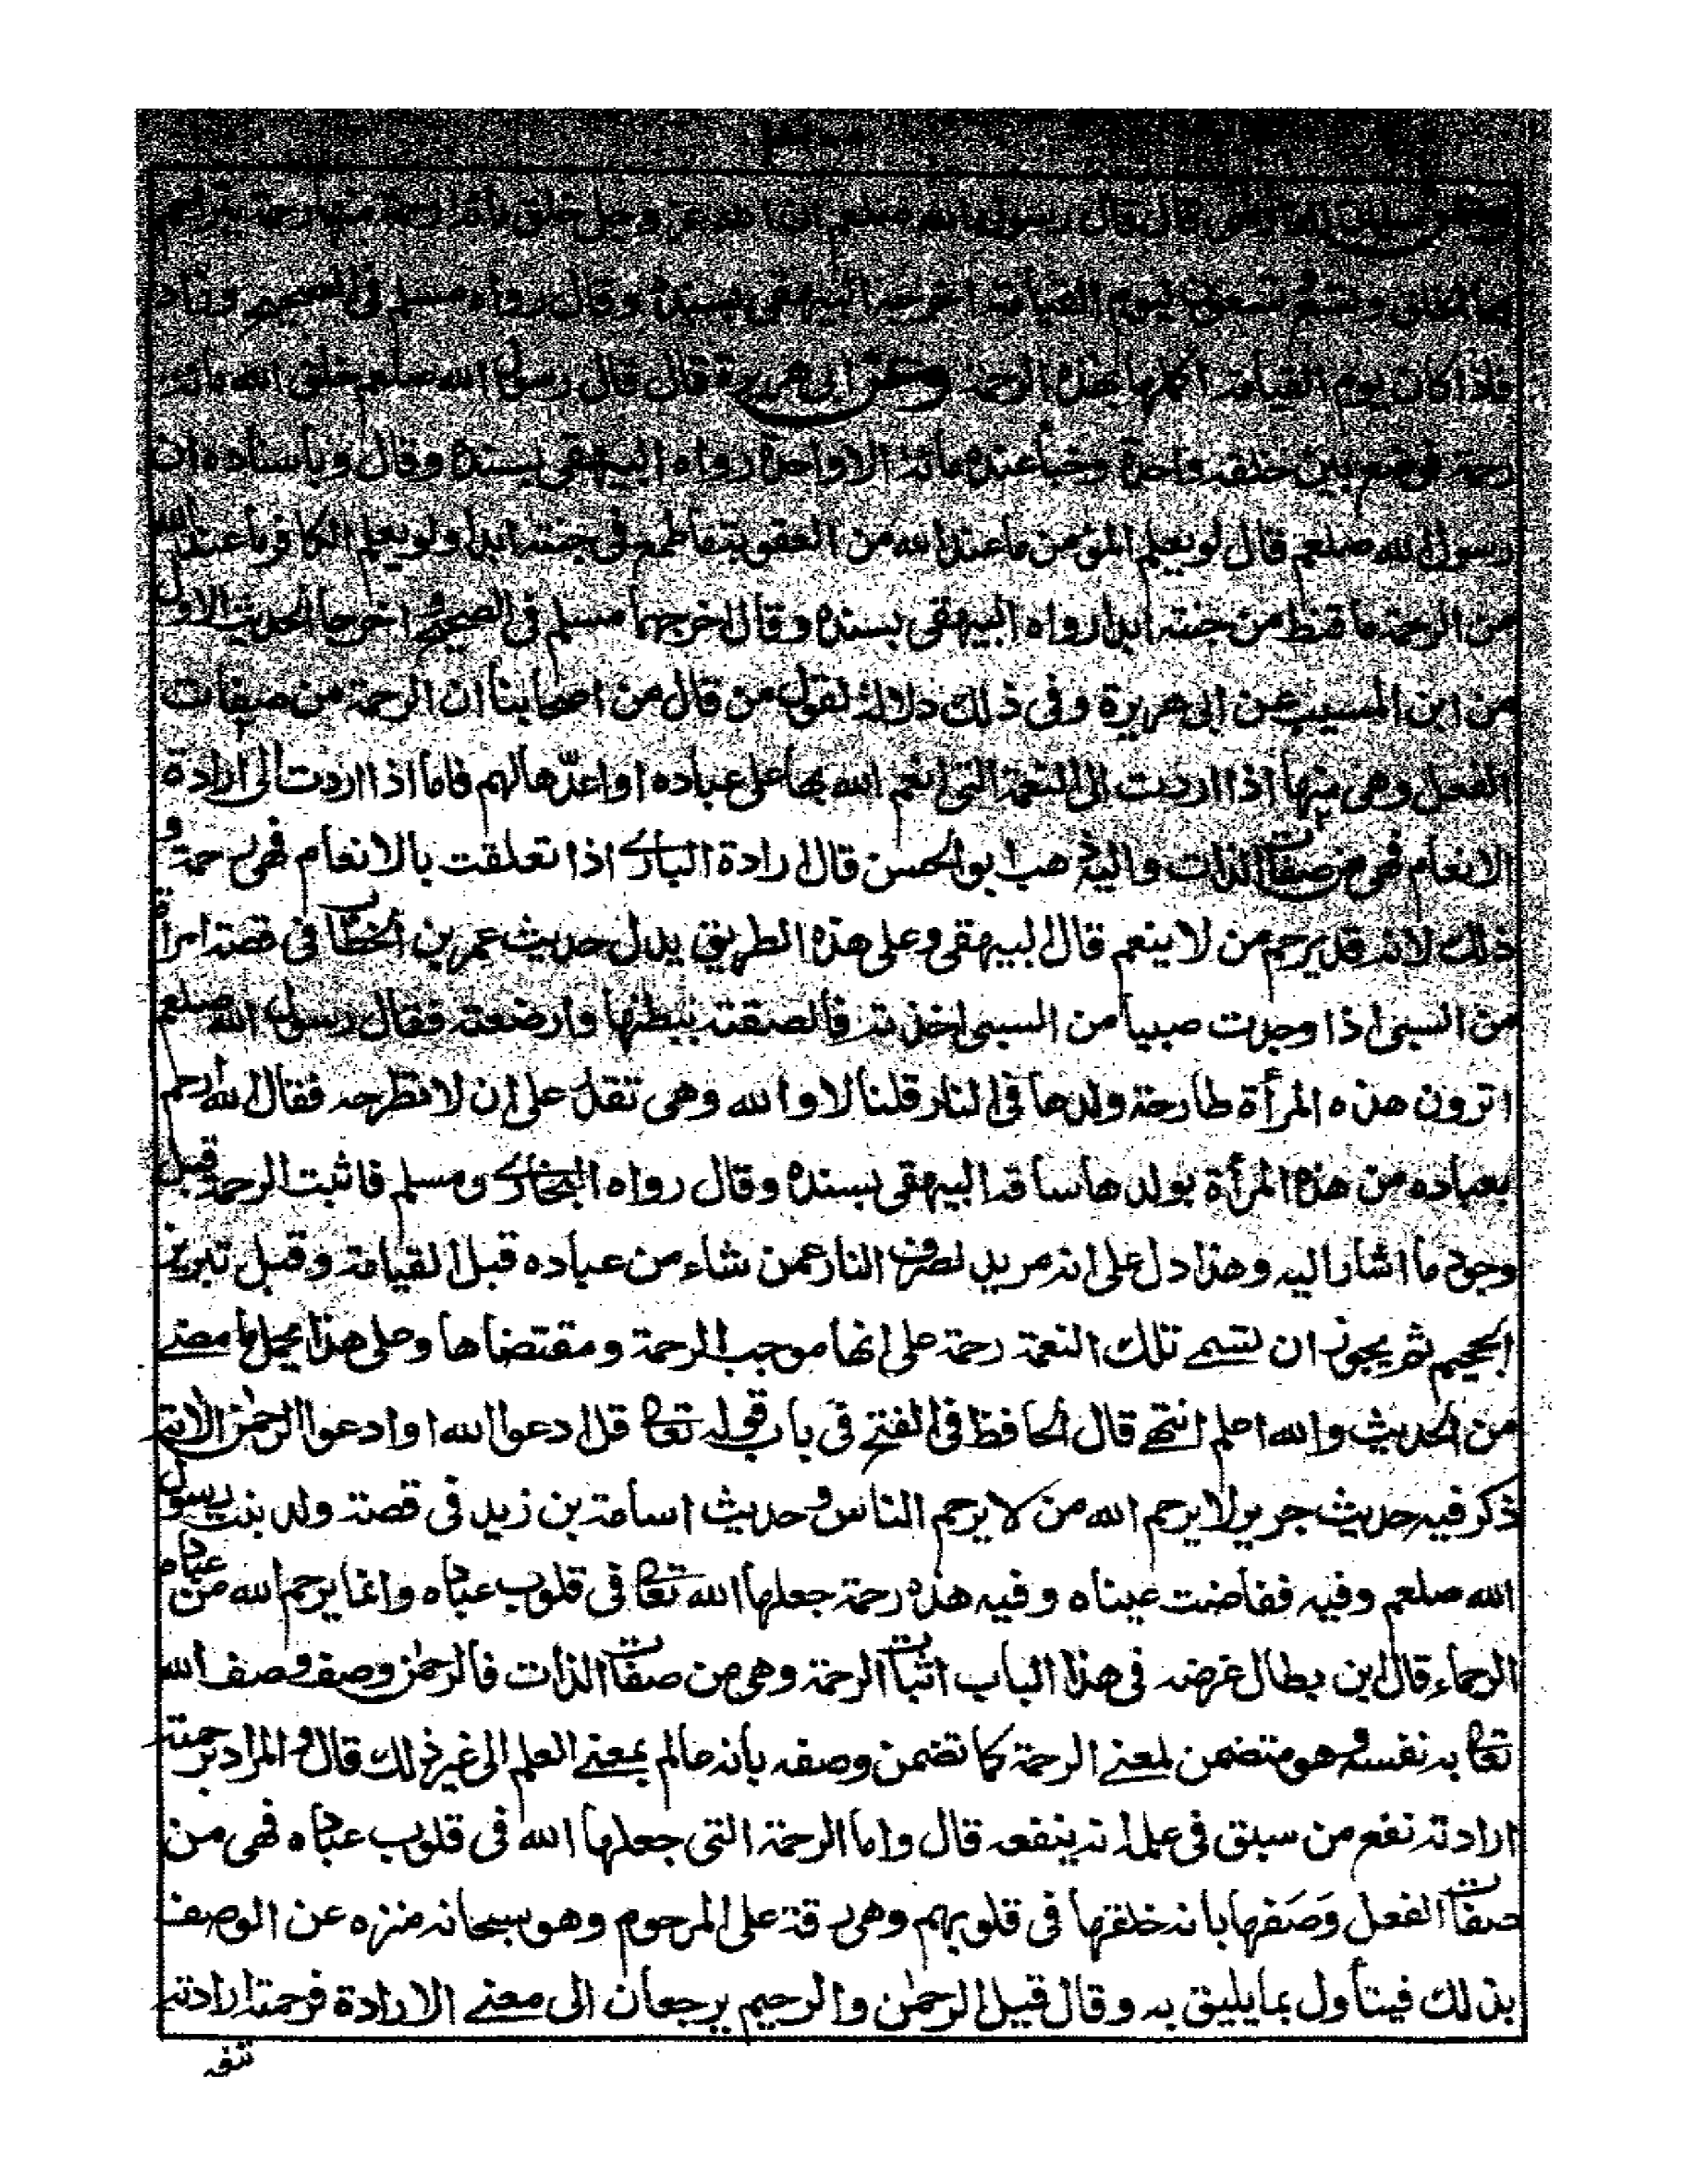 وعن سلمان قال قال رسول الله صلعم ان الله عز وجل خلق مائة رحمة منها رحمة يتراحم
بها الخلق وتسع وتسعون ليوم القيامة اخرجه البيهقى بسنده وقال رواه مسلم فى الصحيح وزاد
فاذا كان يوم القيامة اكملها بهذه الرحمة وعن ابى هريرة قال قال رسول الله صلعم خلق الله مائة
رحمة فوضع بين خلقه واحدة وخبأ عنده مائة الا واحدة رواه البيهقى بسنده وقال وباسناده ان
رسول الله صلعم قال لو يعلم المؤمن ما عند الله من العقوبة ما طمع فى جنته ابدا ولو يعلم الكافر ما عند الله
من الرحمة ما قنط من جنته ابدا رواه البيهقى بسنده وقال اخرجهما مسلم فى الصحيح و اخرجا الحديث الاول
من ابن المسيب عن ابى هريرة وفى ذلك دلالة لقول من قال من اصحابنا ان الرحمة من صفات
الفعل وهى منها اذا اردت الى النعمة التى انعم الله بها على عباده او اعدّها لهم فاما اذا اردت الى ارادة
الانعام فهى من صفات الذات واليه ذهب ابو الحسن قال ارادة البارى اذا تعلقت بالانعام فهى رحمة و
ذلك لانه قد يرحم من لا ينعم قال البيهقى وعلى هذه الطريق يدل حديث عمر بن الخطاب فى قصة امرأة
من السبى اذا وجدت صبيا من السبى اخذته فالصقته ببطنها وارضعته فقال رسول الله صلعم
اترون هذه المرأة طارحة ولدها فى النار قلنا لا والله وهى تقدر على ان لا تطرحه فقال الله ارحم
بعباده من هذه المرأة بولدها ساقه البيهقى بسنده وقال رواه البخارى ومسلم فاثبت الرحمة قبل
وجود ما اشار اليه وهذا دل على انه مريد لصرف النار عمن شاء من عباده قبل القيامة وقبل تبريز
الجحيم ثم يجوز ان تسمى تلك النعمة رحمة على انها موجب الرحمة ومقتضاها وعلى هذا يحمل ما مضى
من الحديث والله اعلم انتهى قال الحافظ فى الفتح فى باب قوله تعالى قل ادعوا الله او ادعوا الرحمٰن الاية
ذكر فيه حديث جرير لا يرحم الله من لا يرحم الناس و حديث اسامة بن زيد فى قصة ولد بنت رسول
الله صلعم وفيه ففاضت عيناه وفيه هذه رحمة جعلها الله تعالى فى قلوب عباده وانما يرحم الله من عباده
الرحماء قال ابن بطال غرضه فى هذا الباب اثبات الرحمة وهى من صفات الذات فالرحمٰن وصف وصف الله
تعالى به نفسه و هو متضمن لمعنى الرحمة كما تضمن وصفه بانه عالم بمعنى العلم الى غير ذلك قال و المراد برحمته
ارادته نفع من سبق فى علمه انه ينفعه قال واما الرحمة التى جعلها الله فى قلوب عباده فهى من
صفات الفعل وَصَفها بانه خلقها فى قلوبهم وهى رقة على المرحوم وهو سبحانه منزه عن الوصف
بذلك فيتأول بما يليق به وقال قيل الرحمٰن والرحيم يرجعان الى معنى الارادة فرحمته ارادته